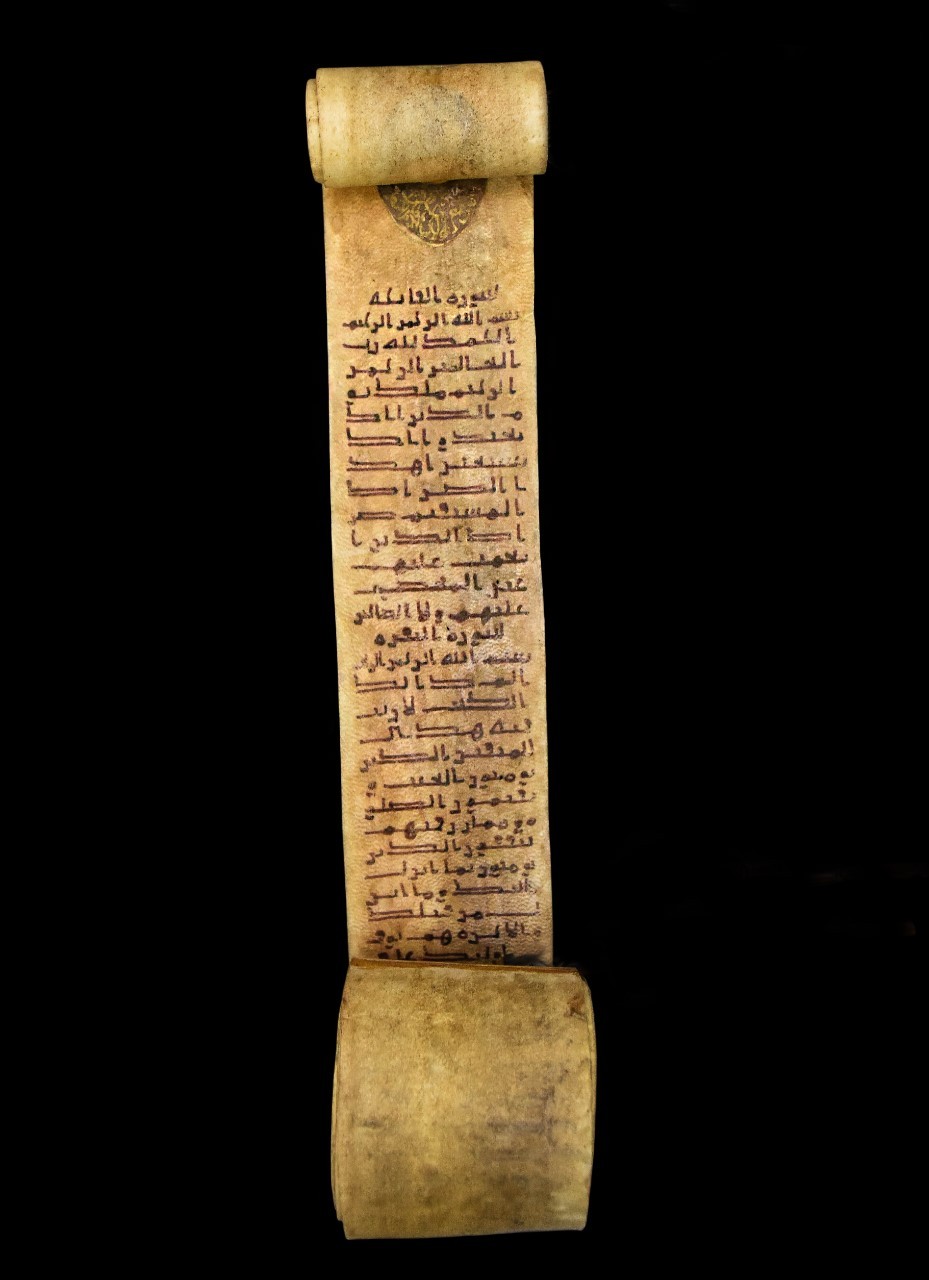 سورة الفاتحة
بسم الله الرحمن الرحيم
الحمد لله رب
العالمين الرحمن
الرحيم ملك يو
م الدين اياك
نعبد و اياك
نستعين اهد
نا الصراط
المستقيم صر
اط الذين ا
نعمت عليهم
غير المغضوب
عليهم ولا الضالين
سورة البقرة
بسم الله الرحمن الرحيم
الم ذلك
الكتب لا ريب
فيه هدى
المتقين الذين
يومنون بالغيب و
يقيمون الصلو
ة ومما رزقنهم
ينفقون الذين
يومنون بما انزل
اليك وما انز
ل من قبلك
بالاخرة هم يوقنو
اولئك على